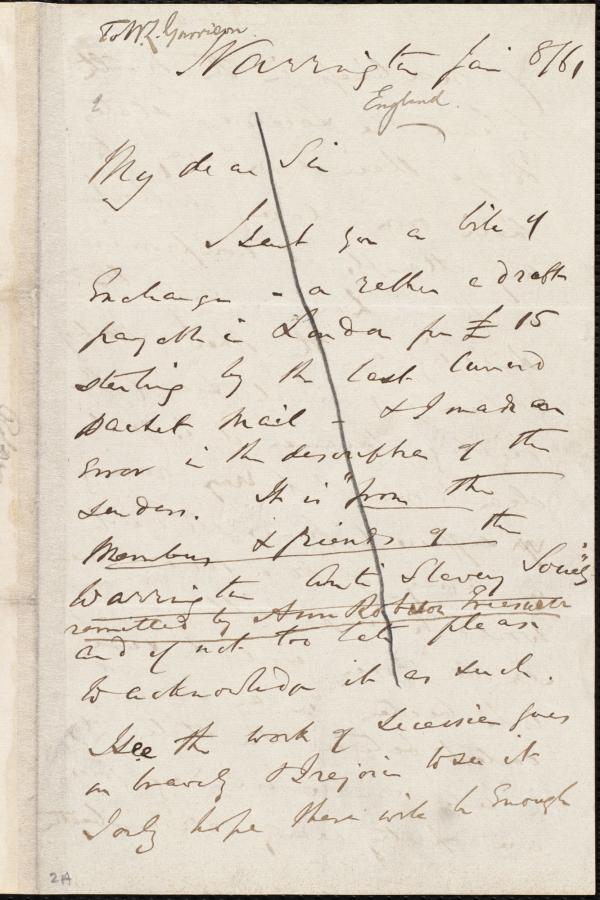 To W. L. Garrison.
Warrington Jan 8/61
England.
My dear Sir
I sent you a bill of
Exchange - or rather a draft
payable in London for £15
sterling by the last Cunard
packet mail - & I made an
error in the description of the
senders. It is "from the
Members & friends of the
Warrington Anti Slavery Society"
remitted by Ann Robson
and if not too late please
to acknowledge it as such.
I see the work of secession goes
on bravely & I rejoice to see it
I only hope there will be enough
2A